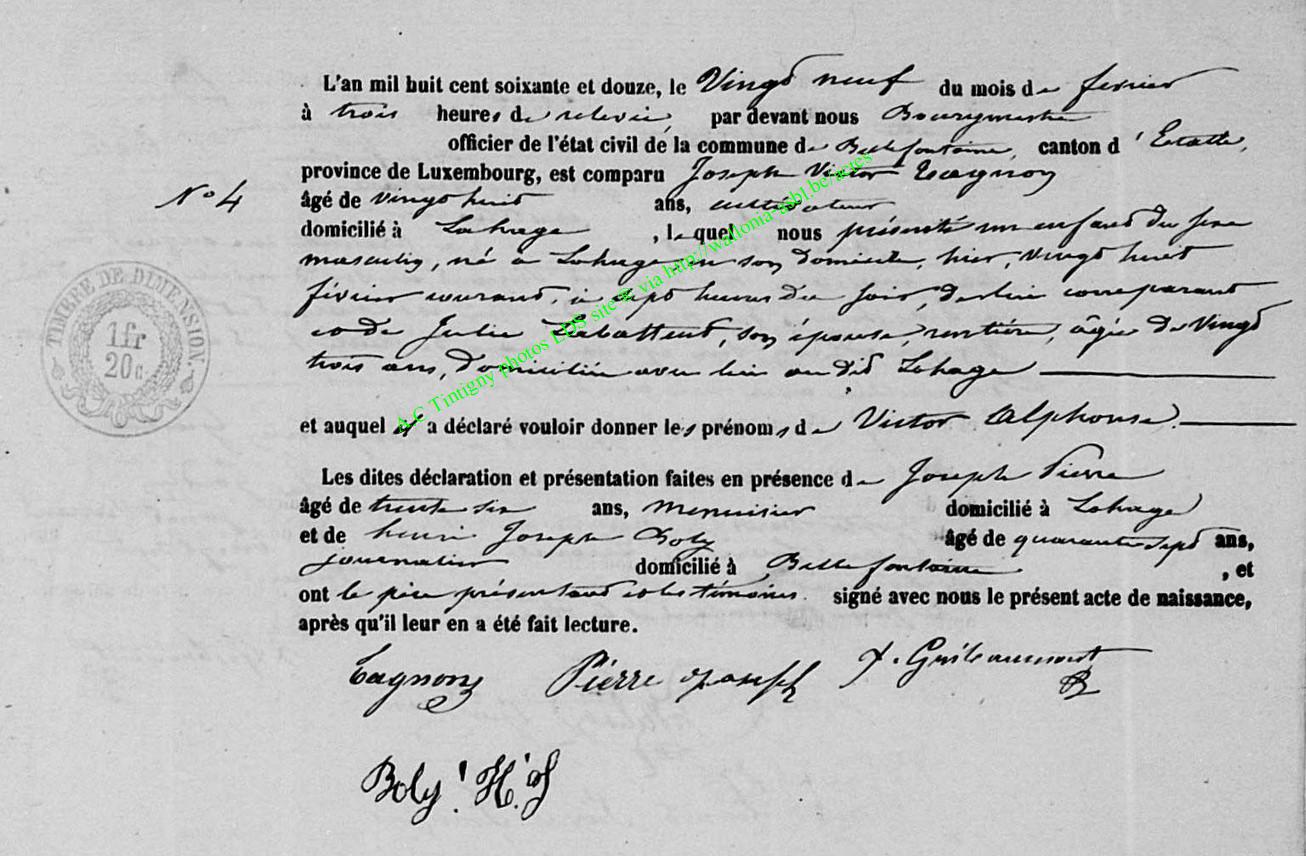 L'an mil huit cent soixante et douze, le Vingt neuf du mois de février
à trois heures de relevée, par devant nous Bourgmestre
officier de l'état civil de la commune de Bellefontaine, canton d'Etalle,
province de Luxembourg, est comparu Joseph Victor Tagnon
N° 4
âgé de vingt huit ans, cultivateur
domicilié à Lahage, lequel nous présenté un enfant du sexe
masculin, né à Lahage en son domicile, hier, vingt huit
février courant, à sept heures du soir, de lui comparant
et de Julie , son épouse, rentière, âgée de Vingt
trois ans, domiciliée avec lui au dit Lahage
et auquel il a déclaré vouloir donner les prénoms de Victor Alphonse.
Les dites déclaration et présentation faites en présence de Joseph Pierre
âgé de trente six ans, menuisier domicilié à Lahage
et de henri Joseph Boly âgé de quarante sept ans,
journalier domicilié à Bellefontaine, et
ont le père présentant et les témoins signé avec nous le présent acte de naissance,
après qu'il leur en a été fait lecture.
Tagnon Pierre joseph
Boly H J
TIMBRE DE DIMENSION.
1fr
20c
A.C Tintigny photos LDS site © via http://wallonia-asbl.be/actes